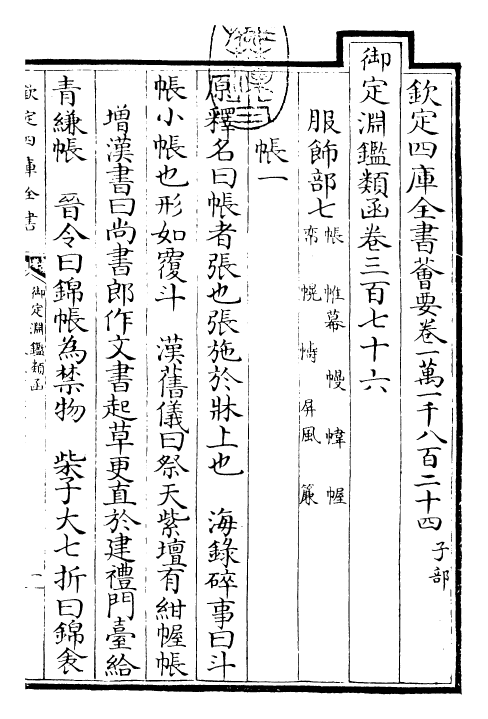 欽定四庫全書薈要卷一萬一千八百二十四 子部
御定淵鑑類函卷三百七十六
服飾部七 帳 帷幕 幔 幃 幄
帟 幌 幬 屏風 簾
帳一
原釋名曰帳者張也張施於牀上也 海錄碎事曰斗
帳小帳也形如覆斗 漢舊儀曰祭天紫壇有紺幄帳
增漢書曰尚書郎作文書起草更直於建禮門臺給
青縑帳 晉令曰錦帳為禁物 柴子大七折曰錦衾
欽定四庫全書
御定淵鑑類函
一